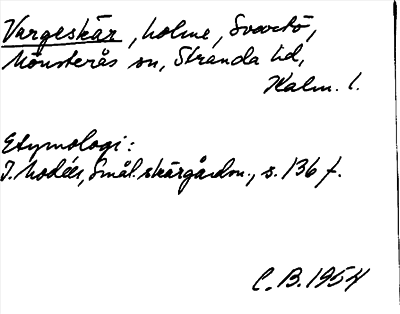 Vargeskär, holme, Svartö,
Mönsterås sn, Stranda hd,
Kalm. l.
Etymologi:
I. Modéer, Smål. skärgårdsn., s. 136 f.
C. B. 1954